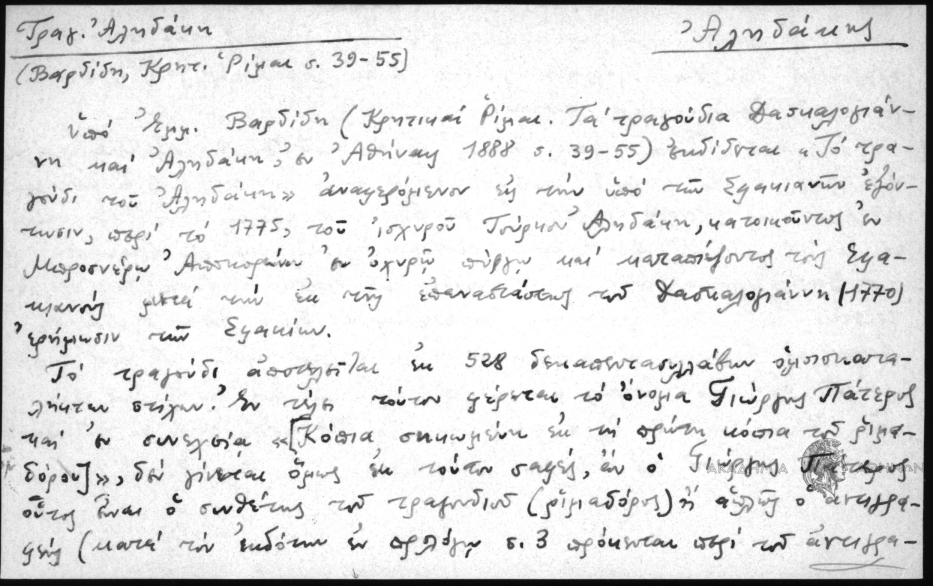 Τραγ. Ἀληδάκη
Ἀληδάκης
(Βαρδίδη, Κρητ. Ῥίμαι σ. 39-55)
ὑπό Ἐμμ. Βαρδίδη (Κρητικαί Ῥίμαι. Τά τραγούδια Δασκαλογιάν-
νη καί Ἀληδάκη, ἐν Ἀθήναις 1888 σ. 39-55) ἐκδίδεται «Τό τρα-
γούδι τοῦ Ἀληδάκη» ἀναφερόμενον εἰς τήν ὑπό τῶν Σφακιανῶν ἐξόν-
τωσιν, περί τό 1775, τοῦ ἰσχυροῦ Τούρκου Ἀληδάκη, κατοικοῦντος ἐν
Μπροσνέρῳ Ἀποκορώνου ἐν ὀχυρῷ πύργῳ καί καταπιέζοντος τούς Σφα-
κιανούς μετά τήν ἐκ τῆς ἐπαναστάσεως τοῦ Δασκαλογιάννη (1770)
ἐρήμωσιν τῶν Σφακίων.
Τό τραγούδι ἀποτελεῖται ἐκ 528 δεκαπεντασυλλάβων ὁμοιοκατα-
λήκτων στίχων. Ἐν τέλει τούτου φέρεται τό ὄνομα Γιώργης Πάτερος
καί ἐν συνεχείᾳ «[Κόπια σηκωμένη ἐκ τή πρώτη κόπια τοῦ ῥιμα-
δόρου]», δέν γίνεται ὅμως ἐκ τούτου σαφές, ἄν ὁ Γιώργης Πάτερος
οὗτος εἶναι ὁ συνθέτης τοῦ τραγουδιοῦ (ῥιμαδόρος) ἤ ἁπλῶς ὁ ἀντιγρα-
φεύς (κατά τόν ἐκδότην ἐν προλόγῳ σ. 3 πρόκειται περί τοῦ ἀντιγρα-
ΑΚΑΔΗΜΙΑ